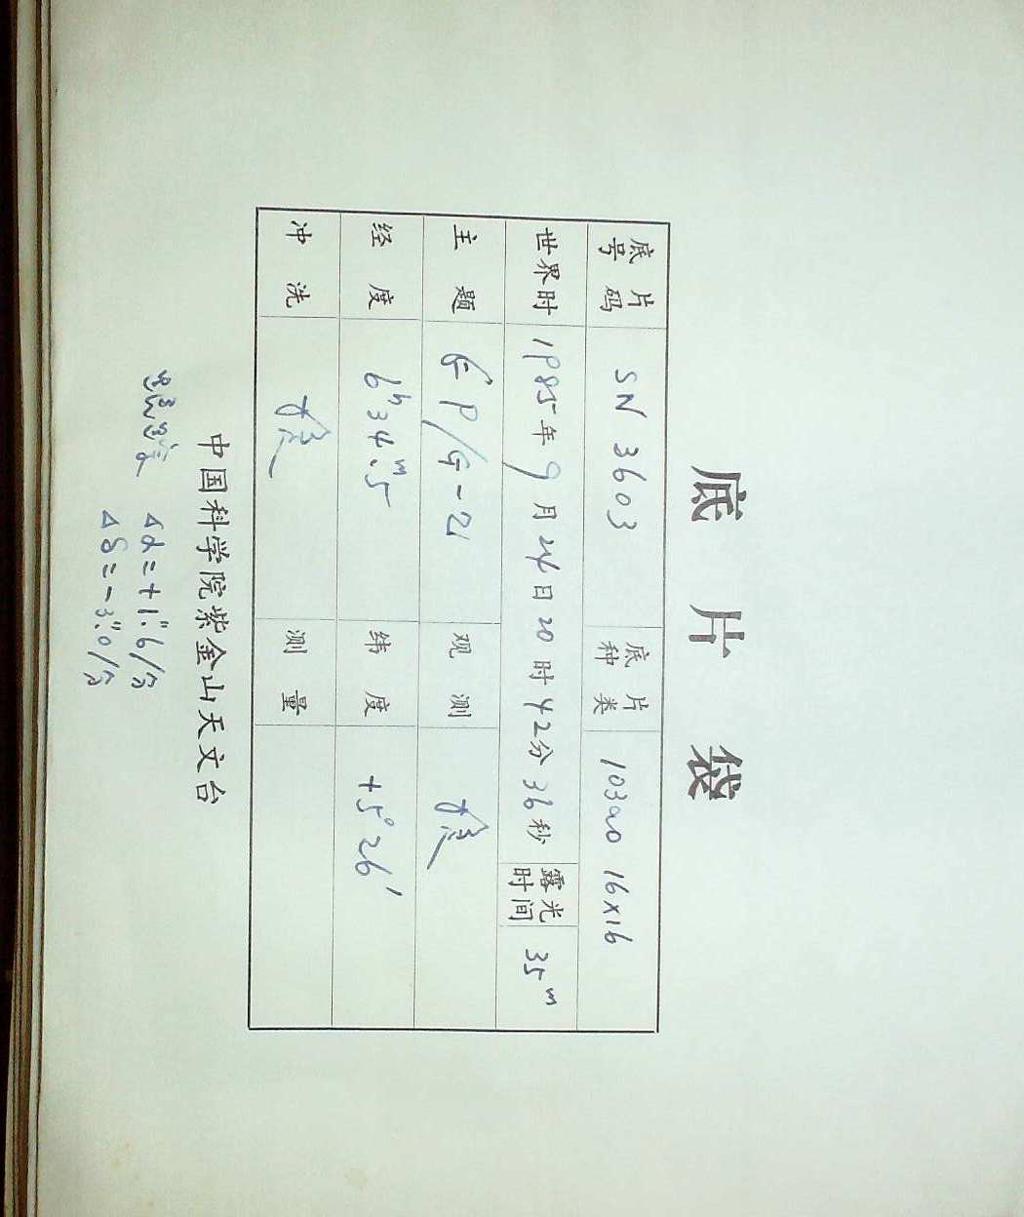 底片袋
底片号码 SN 3603 底片种类 103aO 16×16
世界时 1985年9月24日20时42分36秒 露光时间 35m
主题 P/G-Z 观测
经度 6h34m.5 纬度 +5°26'
冲洗 测量
中国科学院紫金山天文台
Δα=+1".6/分
Δδ=-3".0/分